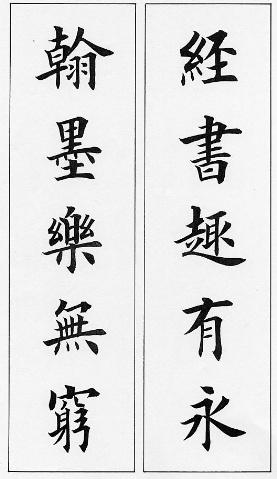 経書趣有永
翰墨樂無窮